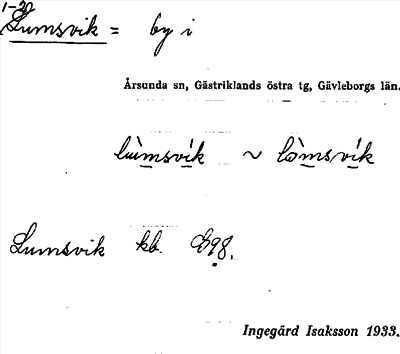 1-20
Lumsvik = by i
Årsunda sn, Gästriklands östra tg, Gävleborgs län.
lùmsvík ~ lòmsvík
Lumsvik kb.
Ingegärd Isaksson 1933.